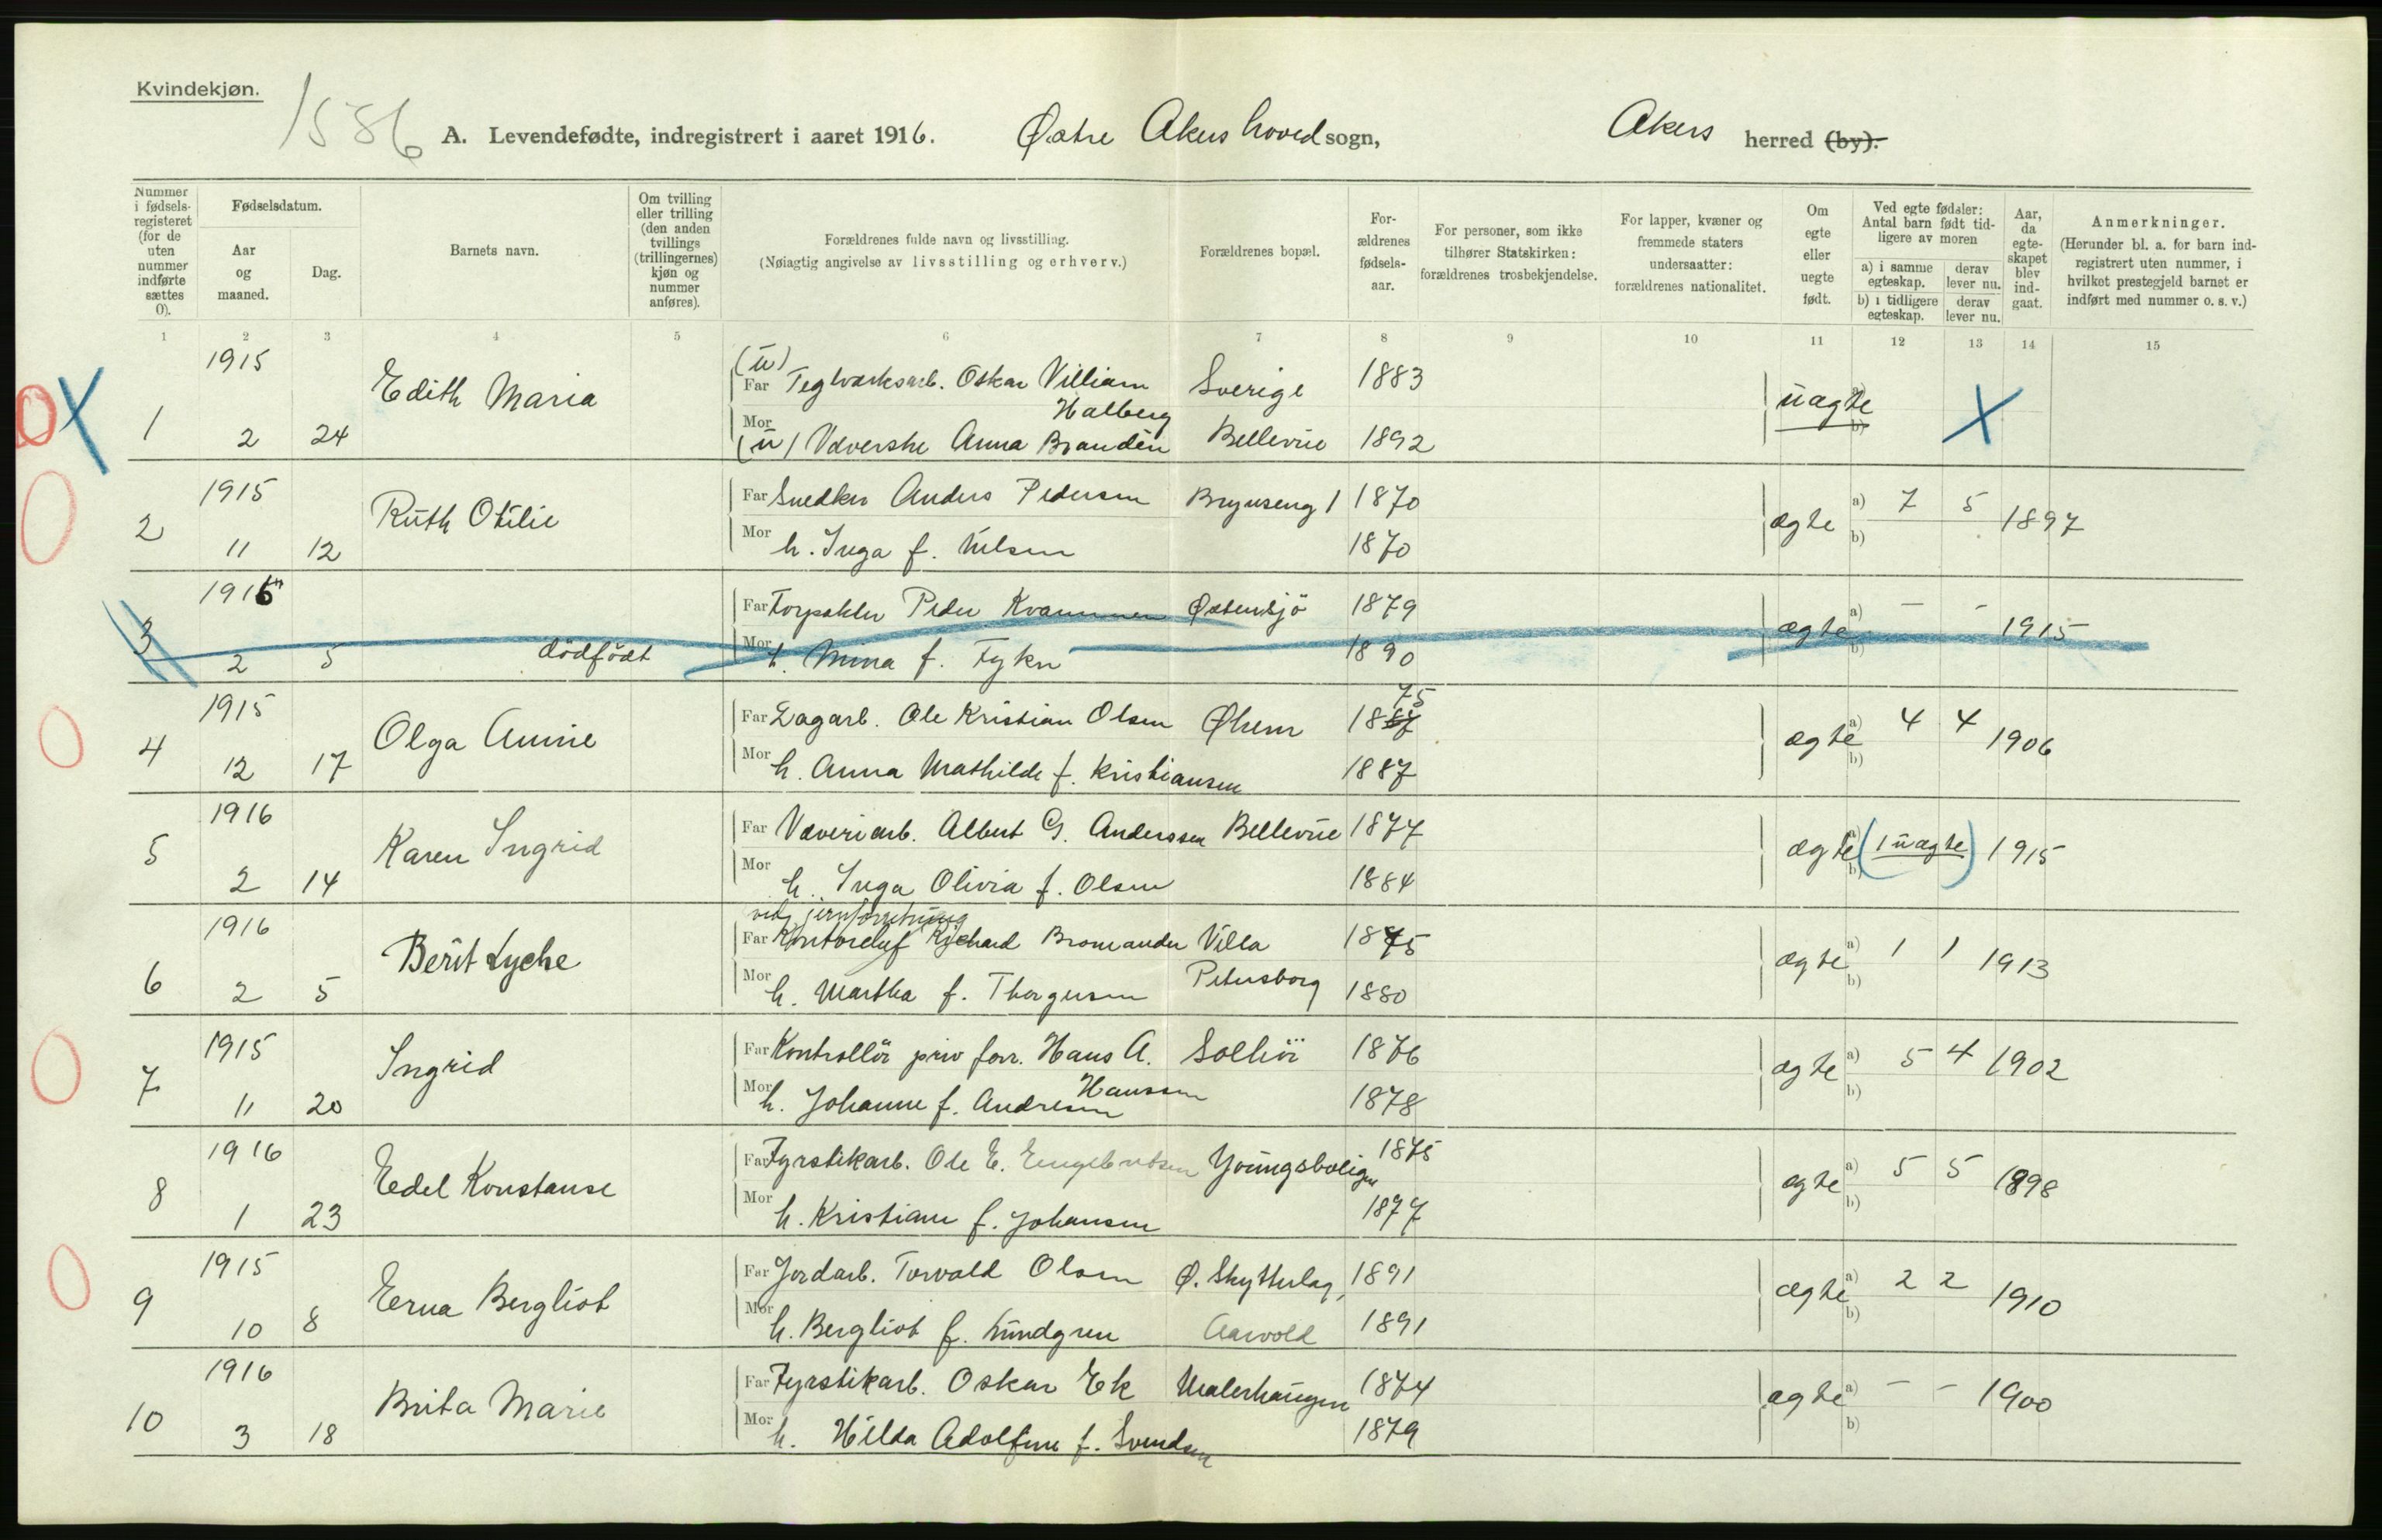 Kvindekjøn.
1586
A. Levendefødte, indregistrert i aaret 1916. Østre Akers hoved sogn, Akers herred (by).
Nummer i fødselsregisteret (for de uten nummer indførte sættes 0).
Fødselsdatum.
Aar og maaned.
Dag.
Barnets navn.
Om tvilling eller trilling (den anden tvillings (trillingernes) kjøn og nummer anføres).
Forældrenes fulde navn og livsstilling.
(Nøiagtig angivelse av livsstilling og erhverv.)
Forældrenes bopæl.
Forældrenes fødselsaar.
For personer, som ikke tilhører Statskirken: forældrenes trosbekjendelse.
For lapper, kvæner og fremmede staters undersaatter: forældrenes nationalitet.
Om egte eller uegte født.
Ved egte fødsler: Antal barn født tidligere av moren
a) i samme egteskap. derav lever nu.
b) i tidligere egteskap. derav lever nu.
Aar, da egteskapet blev indgaat.
Anmerkninger.
(Herunder bl. a. for barn indregistrert uten nummer, i hvilket prestegjeld barnet er indført med nummer o. s. v.)
1 2 3 4 5 6 7 8 9 10 11 12 13 14 15
1915 (u) Far Teglværksarb. Oskar Villiam Halberg Sverige 1883
1 2 24 Edith Maria uægte a) b)
Mor (u) Væverske Anna Brandén Bellevue 1892
1915 Far Snedker Anders Pedersen Brynseng 1 1870
2 11 12 Ruth Otilie ægte a) 7 5 b) 1897
Mor h. Inga f. Nilsen 1870
1916 Far Forpakter Peder Kvammen Østensjö 1879
3 2 5 dödfödt ægte a) - - b) 1915
Mor h. Mina f. 1890
1915 Far Dagarb. Ole Kristian Olsen Økern 1887 75
4 12 17 Olga Annie ægte a) 4 4 b) 1906
Mor h. Anna Mathilde f. Kristiansen 1887
1916 Far Væveriarb. Albert G. Anderssen Bellevue 1877
5 2 14 Karen Ingrid ægte a) (1 uægte) b) 1915
Mor h. Inga Olivia f. Olsen 1884
1916 ved jernforretning
Far Kontorchef Richard Bromander Villa Petersborg 1875
6 2 5 Berit Lyche ægte a) 1 1 b) 1913
Mor h. Martha f. Thorgersen 1880
1915 Far Kontrollör priv forr. Hans A. Hanssen Solhöi 1876
7 11 20 Ingrid ægte a) 5 4 b) 1902
Mor h. Johanne f. Andresen 1878
1916 Far Fyrstikarb. Ole E. Engebretsen Youngsboligen 1875
8 1 23 Edel Konstanse ægte a) 5 5 b) 1898
Mor h. Kristiane f. Johansen 1877
1915 Far Jordarb. Torvald Olsen Ø. Skytterlag, 1891
9 10 8 Erna Bergliot ægte a) 2 2 b) 1910
Mor h. Bergliot f. Lundgren Aarvold 1891
1916 Far Fyrstikarb. Oskar Ek Malerhaugen 1874
10 3 18 Brita Marie ægte a) - - b) 1900
Mor h. Hilda Adolfine f. Svendsen 1879